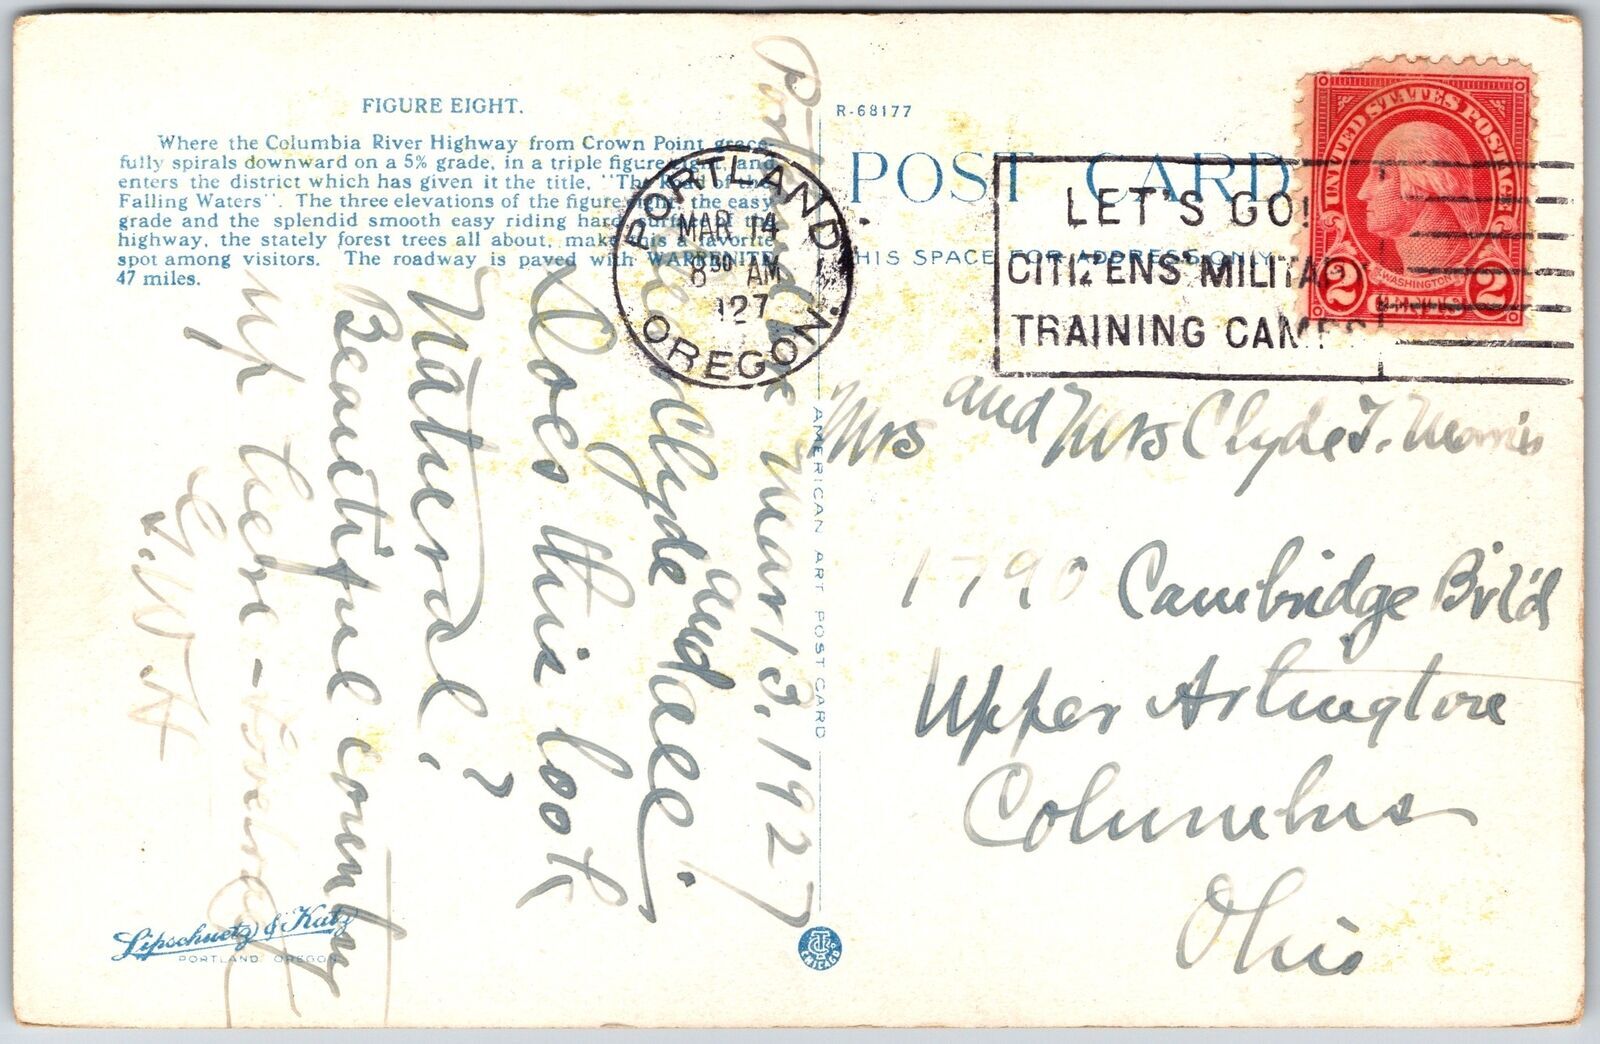 FIGURE EIGHT.
Where the Columbia River Highway from Crown Point grace-
fully spirals downward on a 5% grade, in a triple figure eight, and
enters the district which has given it the title, "The Road of the
Falling Waters". The three elevations of the figure eight, the easy
grade and the splendid smooth easy riding hard surface of the
highway, the stately forest trees all about, make this a favorite
spot among visitors. The roadway is paved with WARRENITE
47 miles.
Portland Ore Mar 13, 1927
Clyde and
Does this look
Natueral?
Beautiful country
up here -
G.W.H
Lipschuetz & Katz
PORTLAND, OREGON
AMERICAN ART POST CARD
C.T. CO CHICAGO
R-68177
POST CARD
THIS SPACE FOR ADDRESS ONLY
PORTLAND
MAR 14
8 30 AM
127
OREGON.
LET'S GO!
CITIZENS' MILITARY
TRAINING CAMPS
UNITED STATES POSTAGE
WASHINGTON
2 CENTS 2
Mrs and Mrs Clyde T. Morris
1790 Cambridge Bvl'd
Upper Arlington
Columbus
Ohio